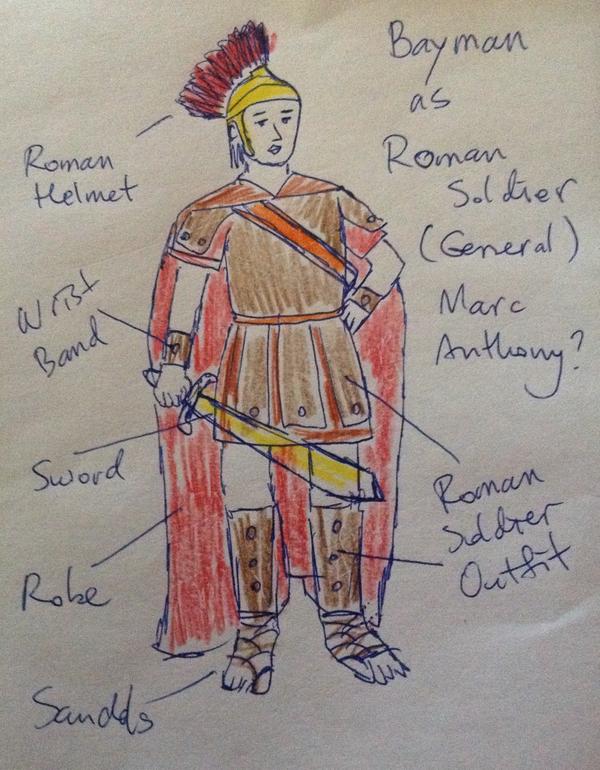 Bayman
as
Roman
Soldier
(General)
Marc
Anthony?
Roman
Helmet
Wrist
Band
Sword
Robe
Sandals
Roman
Soldier
Outfit